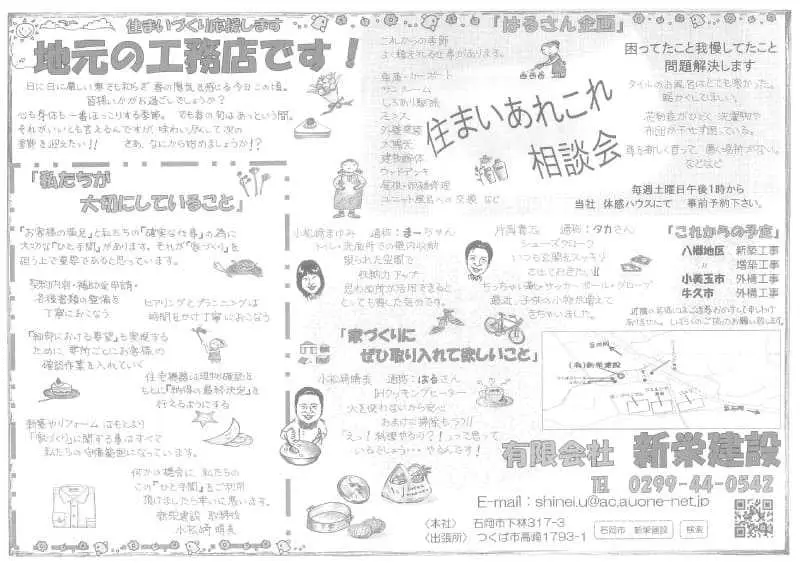 住まいづくり応援します
地元の工務店です!
日に日に厳しい寒さも和らぎ 春の陽気を感じる今日この頃。
皆様いかがお過ごしでしょうか?
心も身体も一番ほっこりする季節。 でも春の旬はあっという間。
それがいいとも言えるんですが、味わい尽くして次の
季節を迎えたい!! さあ、なにから始めましょうか!?
「私たちが
大切にしていること」
「お客様の満足」と私たちの「確実な仕事」の為に
大切な「ひと手間」があります。それが「家づくり」を
担う上で重要であると思っています。
契約内容・補助金申請・
各種書類の整備を
丁寧におこなう
ヒアリングとプランニングは
時間をかけ丁寧におこなう
「細部における要望」も実現する
ために 要所ごとにお客様の
確認作業を入れていく
住宅機器は現物確認を
もとに「納得の最終決定」を
行えるようにする
新築やリフォームはもとより
「家づくり」に関する事はすべて
私たちの守備範囲になっています。
何かの機会に 私たちの
この「ひと手間」をご利用
頂けましたら幸いに思います。
新栄建設 取締役
小松﨑 晴美
「はるさん企画」
これからの季節
よく増える仕事があります。
車庫・カーポート
サンルーム
しろあり駆除
太陽光
建物解体
ウッドデッキ
屋根・雨樋修理
ユニット風呂への交換 など
住まいあれこれ
相談会
困ってたこと我慢してたこと
問題解決します
タイルのお風呂はとても寒かった。
暖かくしてほしい。
花粉症がひどく洗濯物や
布団が干せず困っている。
などなど
毎週土曜日午後1時から
当社 体感ハウスにて 事前予約下さい。
小松﨑まゆみ 通称:まーちゃん
トイレ・洗面所などの壁内収納
限られた空間で
収納力アップ
思わぬ所が活用できると
とっても得した気分です。
片岡貴志 通称:タカさん
シューズクローク
いつも玄関をスッキリ
させておきたい!!
ちっちゃい靴・サッカーボール・グローブ
最近、子供の小物が増えて
きちゃいました。
「これからの予定」
八郷地区 新築工事
〃 増築工事
小美玉市 外構工事
牛久市 外構工事
近隣の皆様にはご迷惑おかけして申しわけ
ありません。しばらくのご協力お願い致します。
「家づくりに
ぜひ取り入れて欲しいこと」
小松﨑晴美 通称:はるさん
IHクッキングヒーター
火を使わないから安心
おまけに掃除もラク!!
「えっ! 料理やるの?!」って思って
いるでしょう…やるんです!
(有)新栄建設
有限会社 新栄建設
TEL 0299-44-0542
E-mail:shinei.u@ac.auone-net.jp
〈本社〉 石岡市下林317-3
〈出張所〉 つくば市高崎1793-1
石岡市 新栄建設 検索